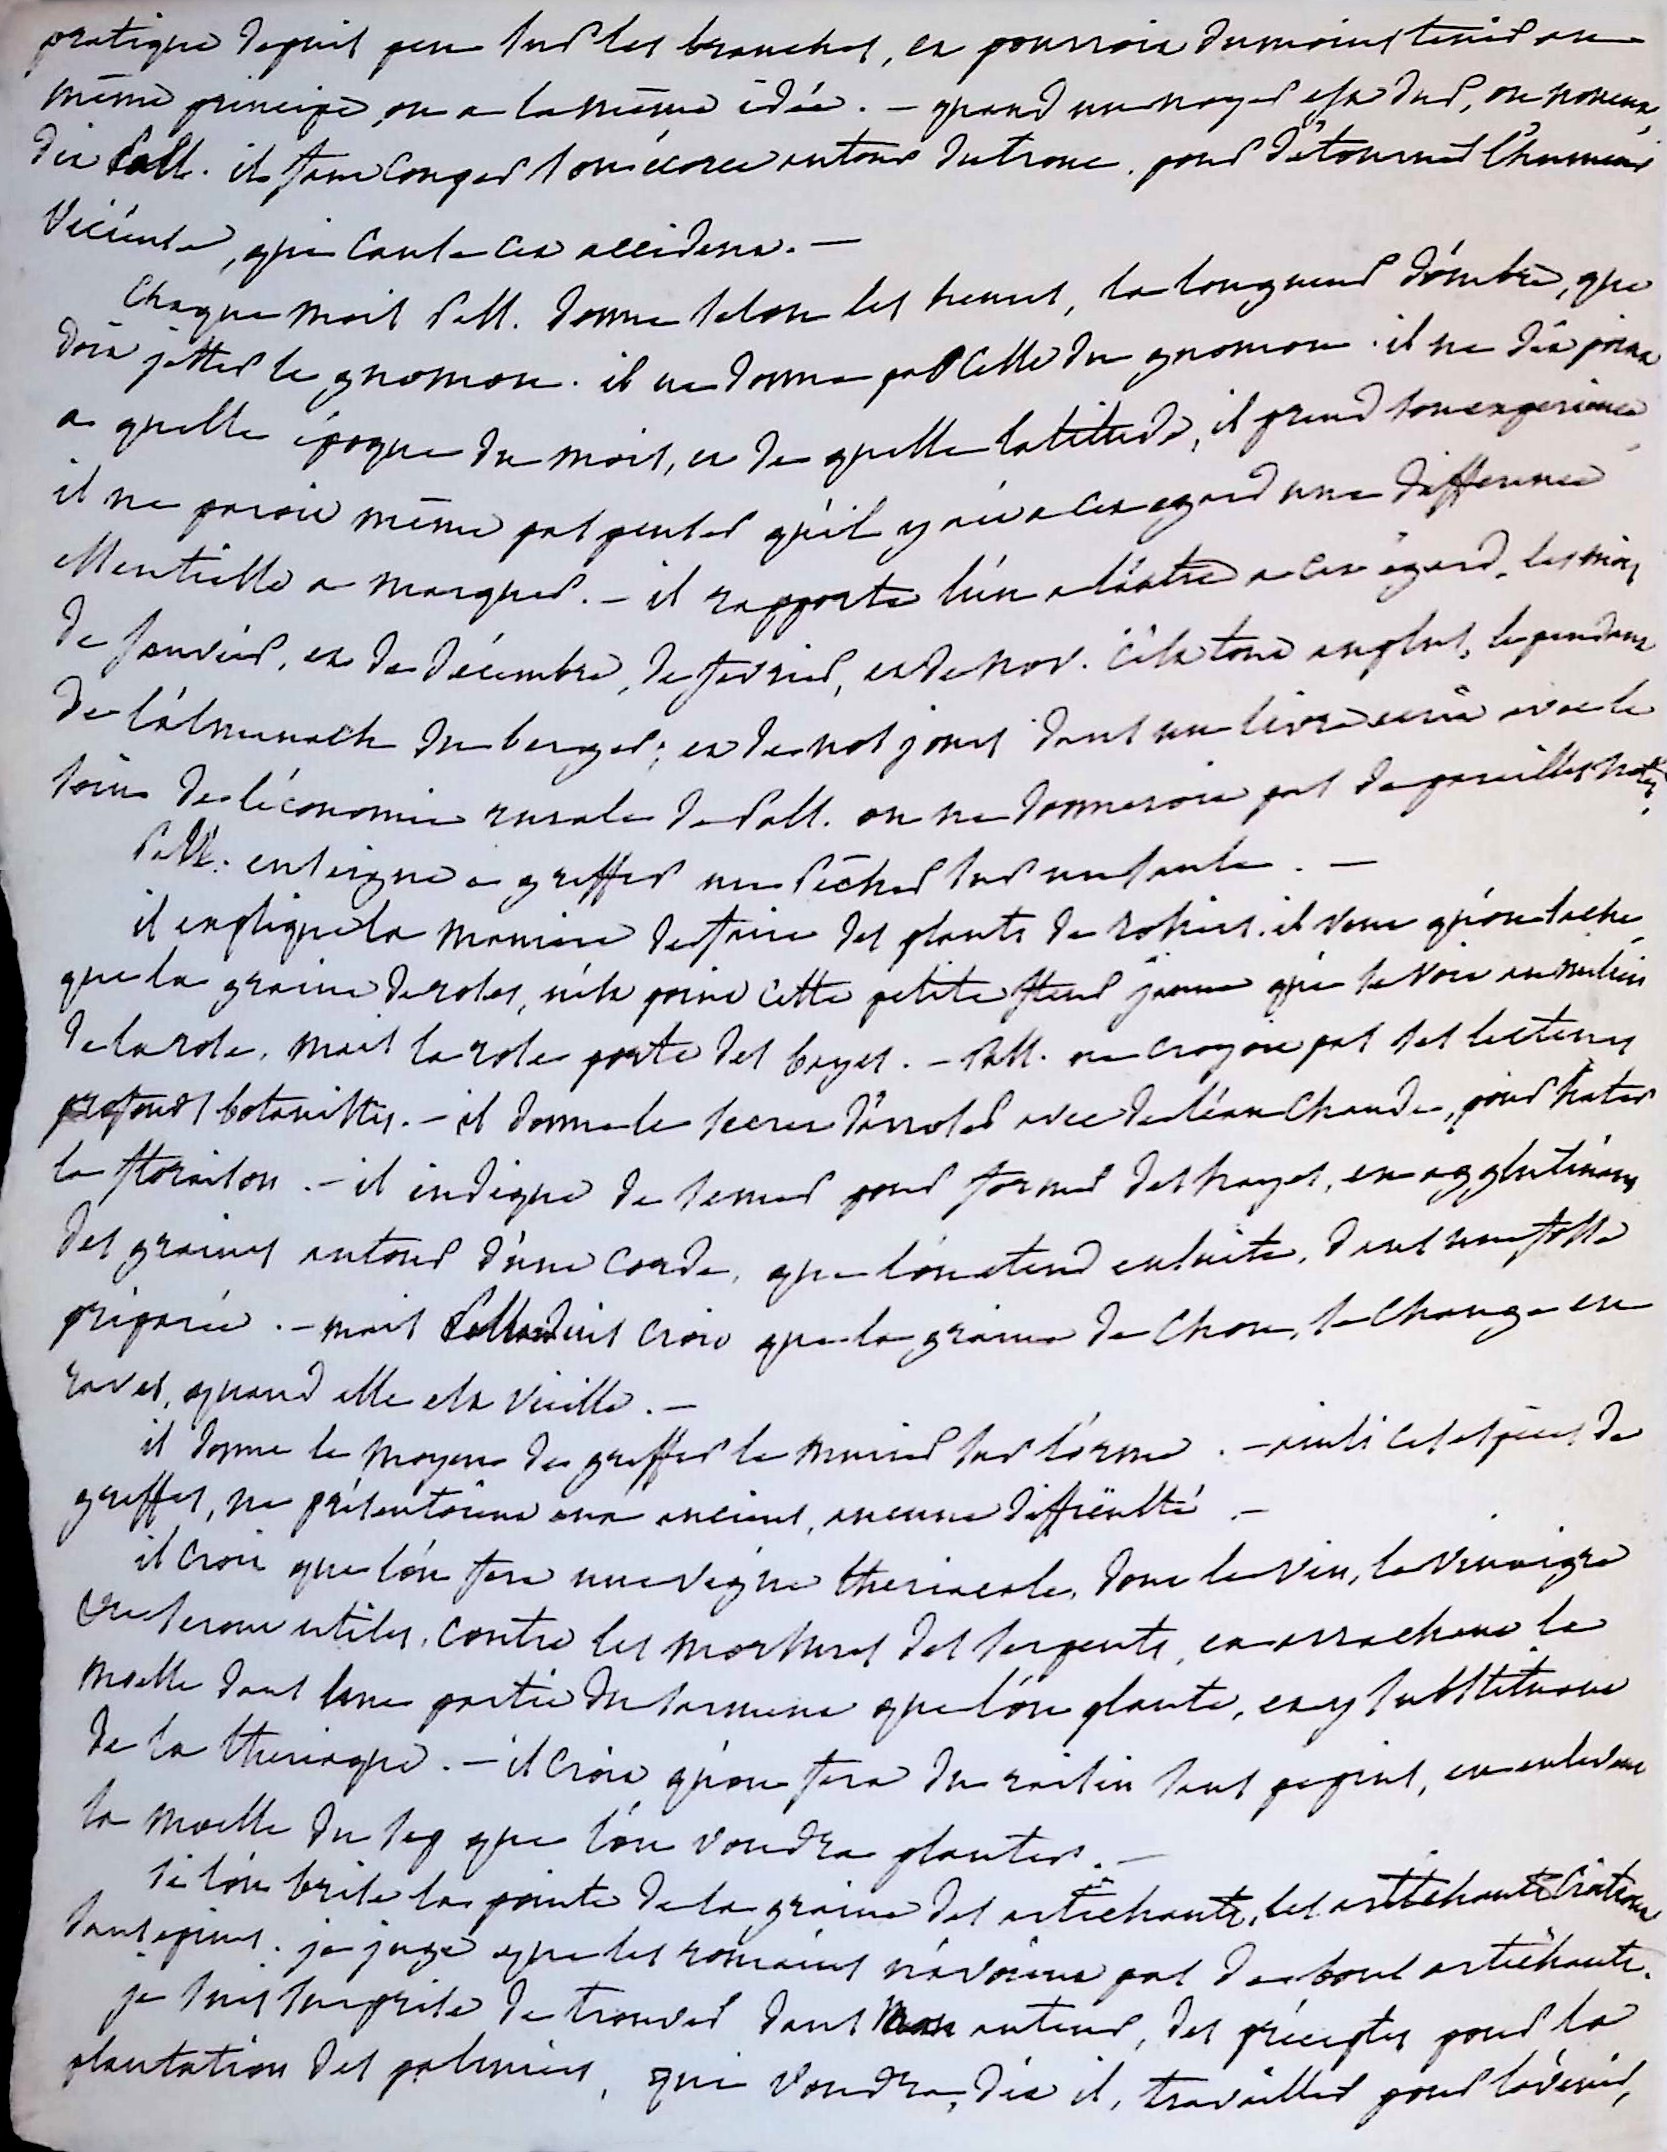 pratique depuis peu sur les branches, et pourroit du moins tenir au
même principe, on a la même idée. - quand un noyer est dur, ou noueux,
dit Pall. il faut couper son écorce autour du tronc, pour détourner l'humeur
viciente, qui cause cet accident. -
Chaque mois Pall. donne selon les heures, la longueur d'ombre, que
doit jetter le gnomon. il ne donne pas celle du gnomon. il ne dit point
a quelle époque du mois, et de quelle latitude, il prend son expérience,
il ne paroit même pas penser qu'il y ait a cet egard une difference
essentielle a marquer. - il rapporte l'un a l'autre a cet égard, les mois
de Janvier, et de décembre, de fevrier, et de nov. c'est tout au plus, le pendant
de l'almanach du berger ; et de nos jours dans un livre ecrit avec le
soin de l'économie rurale de Pall. on ne donneroit pas de pareilles notes.
Pall. enseigne a greffer un Pêcher sur un saule. -
il explique la maniere de faire des plants de rosiers. il veut qu'on sache
que la graine de roses, n'est point cette petite fleur jaune qui se voit au milieu
de la rose, mais la rose porte des bayes. - Pall. ne croyoit pas ses lecteurs
profonds botanistes. - il donne le secret d'arroser avec de l'eau chaude, pour hater
la floraison. - il indique de semer pour former des hayes, en agglutinant
des graines autour d'une corde, que l'on etend ensuite, dans une fosse
préparée. - mais Palladius croit que la graine de chou, se change en
raves, quand elle est vieille. -
il donne le moyen de greffer le murier sur l'orme. - ainsi ces espèces de
greffes, ne présentoient aux anciens, aucune difficulté. -
il croit que l'on fera une vigne theriacale, dont le vin, le vinaigre
seront utiles, contre les morsures des serpents, en arrachant la
moelle dans une partie du sarment que l'on plante, en y substituant
de la theriaque. - il croit qu'on fera du raisin sans pepins, en enlevant
la moelle du sep que l'on voudra planter. -
si l'on brise la pointe de la graine des artichauts, les artichauts croitront
sans epines. je juge que les romains n'avoient pas de bons artichauts.
je suis surprise de trouver dans mon auteur, des préceptes pour la
plantation des palmiers, qui voudra, dit il, travailler pour l'avenir,